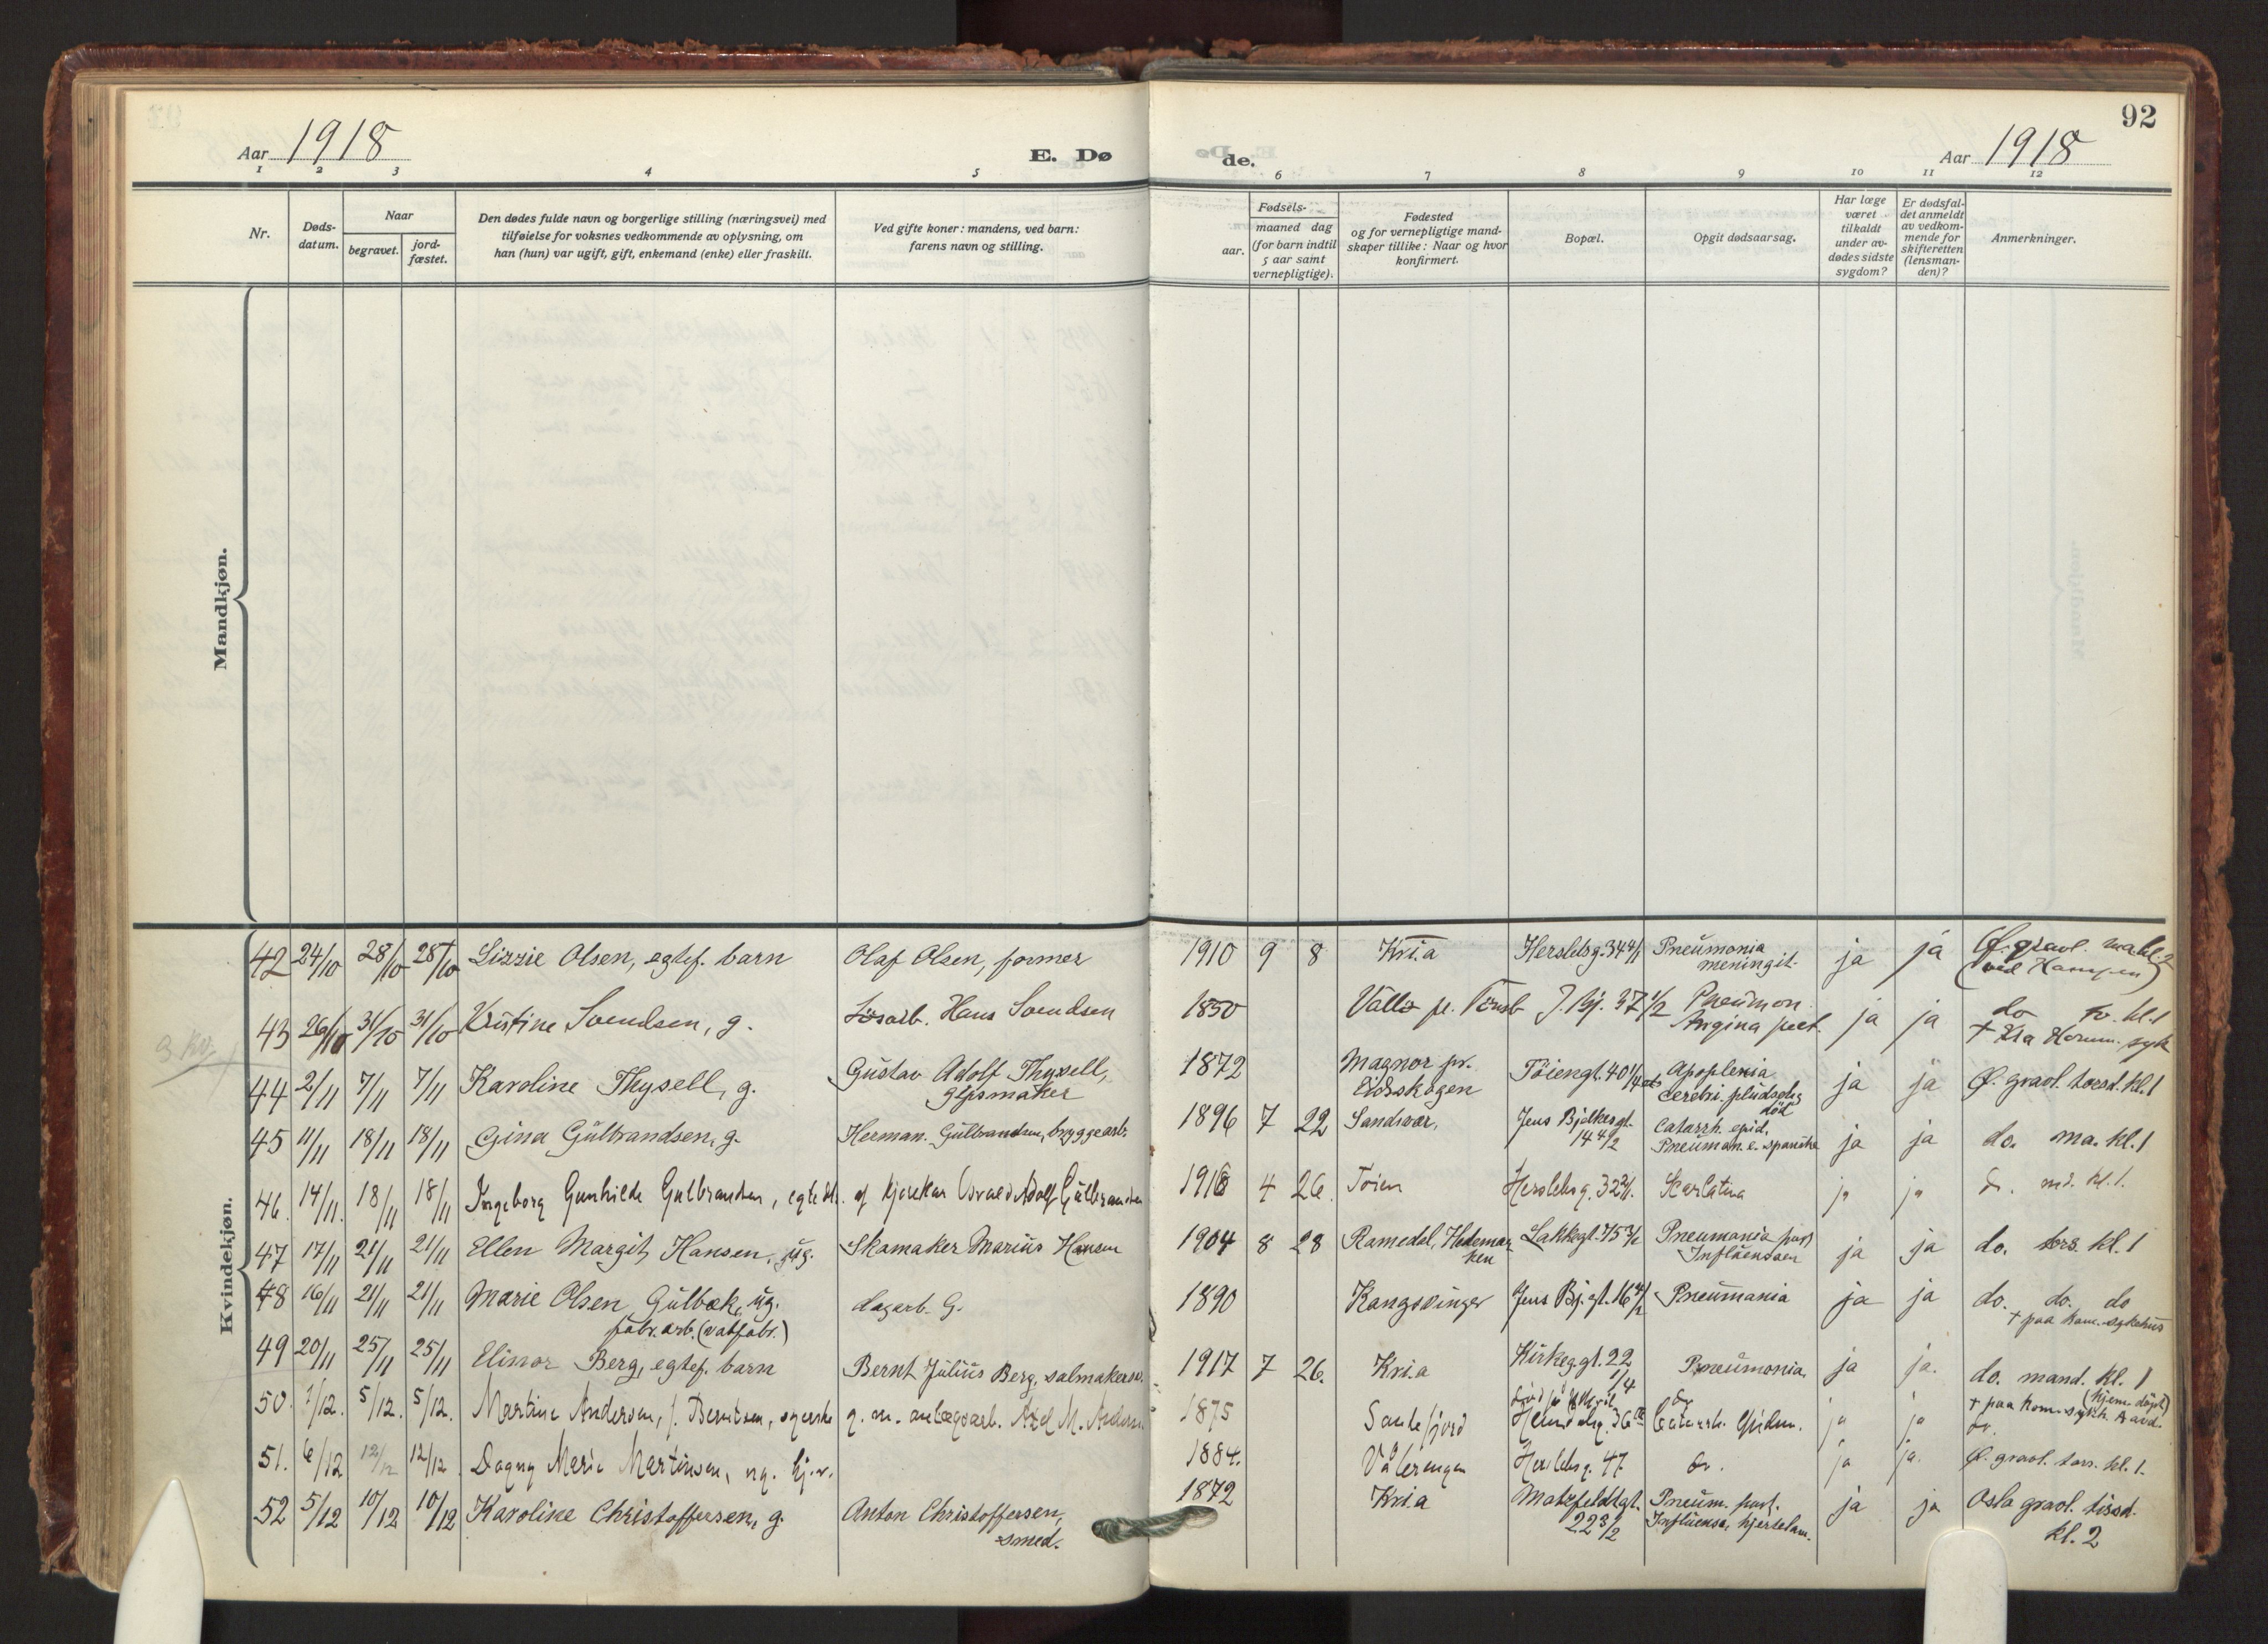 92
Aar 1918
E. Dø
de.
Aar 1918
1 2 3 4 5 6 7 8 9 10 11 12
Nr.
Døds-
datum.
Naar
begravet.
jord-
fæstet.
Den dødes fulde navn og borgerlige stilling (næringsvei) med
tilføielse for voksnes vedkommende av oplysning, om
han (hun) var ugift, gift, enkemand (enke) eller fraskilt.
Ved gifte koner: mandens, ved barn:
farens navn og stilling.
Fødsels-
aar.
maaned dag
(for barn indtil
5 aar samt
vernepligtige).
Fødested
og for vernepligtige mand-
skaper tillike: Naar og hvor
konfirmert.
Bopæl.
Opgit dødsaarsag.
Har læge
været
tilkaldt
under av-
dødes sidste
sygdom?
Er dødsfal-
det anmeldt
av vedkom-
mende for
skifteretten
(lensman-
den)?
Anmerkninger.
Mandkjøn.
Kvindekjøn.
42 24/10 28/10 28/10 Lizzie Olsen, egtef. barn Olaf Olsen, former 1910 9 8 Kri.a Herslebsg. 34 4/1 Pneumonia meningit. ja ja Ø. gravl. ma kl. 2 (ved Kampen)
43 26/10 31/10 31/10 Kristine Svendsen, g. Løsarb. Hans Svendsen 1850 Vallø pr. Tönsb J. Bj. 37 1/2 Pneumon. Angina pect. ja ja do kl. 1
44 2/11 7/11 7/11 Karoline Thysell, g. Gustav Adolf Thysell, gipsmaker 1872 Magnor pr. Eidsskogen Töiengt. 40 1/4 Apoplexia cerebri. pludselig död ja ja Ø. gravl. torsd. kl. 1
45 11/11 18/11 18/11 Gina Gulbrandsen, g. Herman Gulbrandsen, bryggearb. 1896 7 22 Sandsvær. Jens Bjelkesgt. 14 4/2 Catarrh. epid. Pneumon. e. spanske ja ja do. ma. kl. 1
46. 14/11. 18/11 18/11 Ingeborg Gunhilde Gulbrandsen, egte dt. af kjørekar Osvald Adolf Gulbrandsen 1918 4 26. Töien Herslebsg. 32 Scarlatina ja ja do. kl. 1.
47 17/11 21/11 21/11 Ellen Margit Hansen, ug. Skomaker Marius Hansen 1904 8 28 Romedal, Hedemarken Lakkegt. 75 Pneumonia post Influensaen ja ja do. tors. kl. 1
48 16/11 21/11 21/11 Marie Olsen Gulbæk, ug. fabr. arb. (vatfabr.) dagarb. G. 1890 Kongsvinger Jens Bj. gt. 16 4/2 Pneumonia ja ja do. do. do + paa Kom. sykehus
49 20/11 25/11 25/11 Elinor Berg, egtef. barn Bernt Julius Berg, salmakersv. 1917 7 26. Kri.a Kirkeg.gt. 22 1/4 Pneumonia ja ja. do. mand. kl. 1 (hjem. döpt)
50. 1/12. 5/12. 5/12. Martine Andersen, f. Berntsen, syerske g. m. anlægsarb. Axel M. Andersen 1875 Sandefjord Heimdalsg. 36 Catarrh. Epidem. ja ja + paa Kom. sykh.
51. 6/12 12/12 12/12 Dagny Marie Martinsen, ug. 1884. Vålerengen Herslebsg. 47 do. ja ja. Ø. gravl. tors. kl. 1.
52 5/12 10/12 10/12 Karoline Christoffersen, g. Anton Christoffersen, smed. 1872 Kri.a Motzfeldtsgt. 22 3/2 Pneum. post. Influensa, hjertelam. ja ja Oslo gravl. tirsd. kl. 2